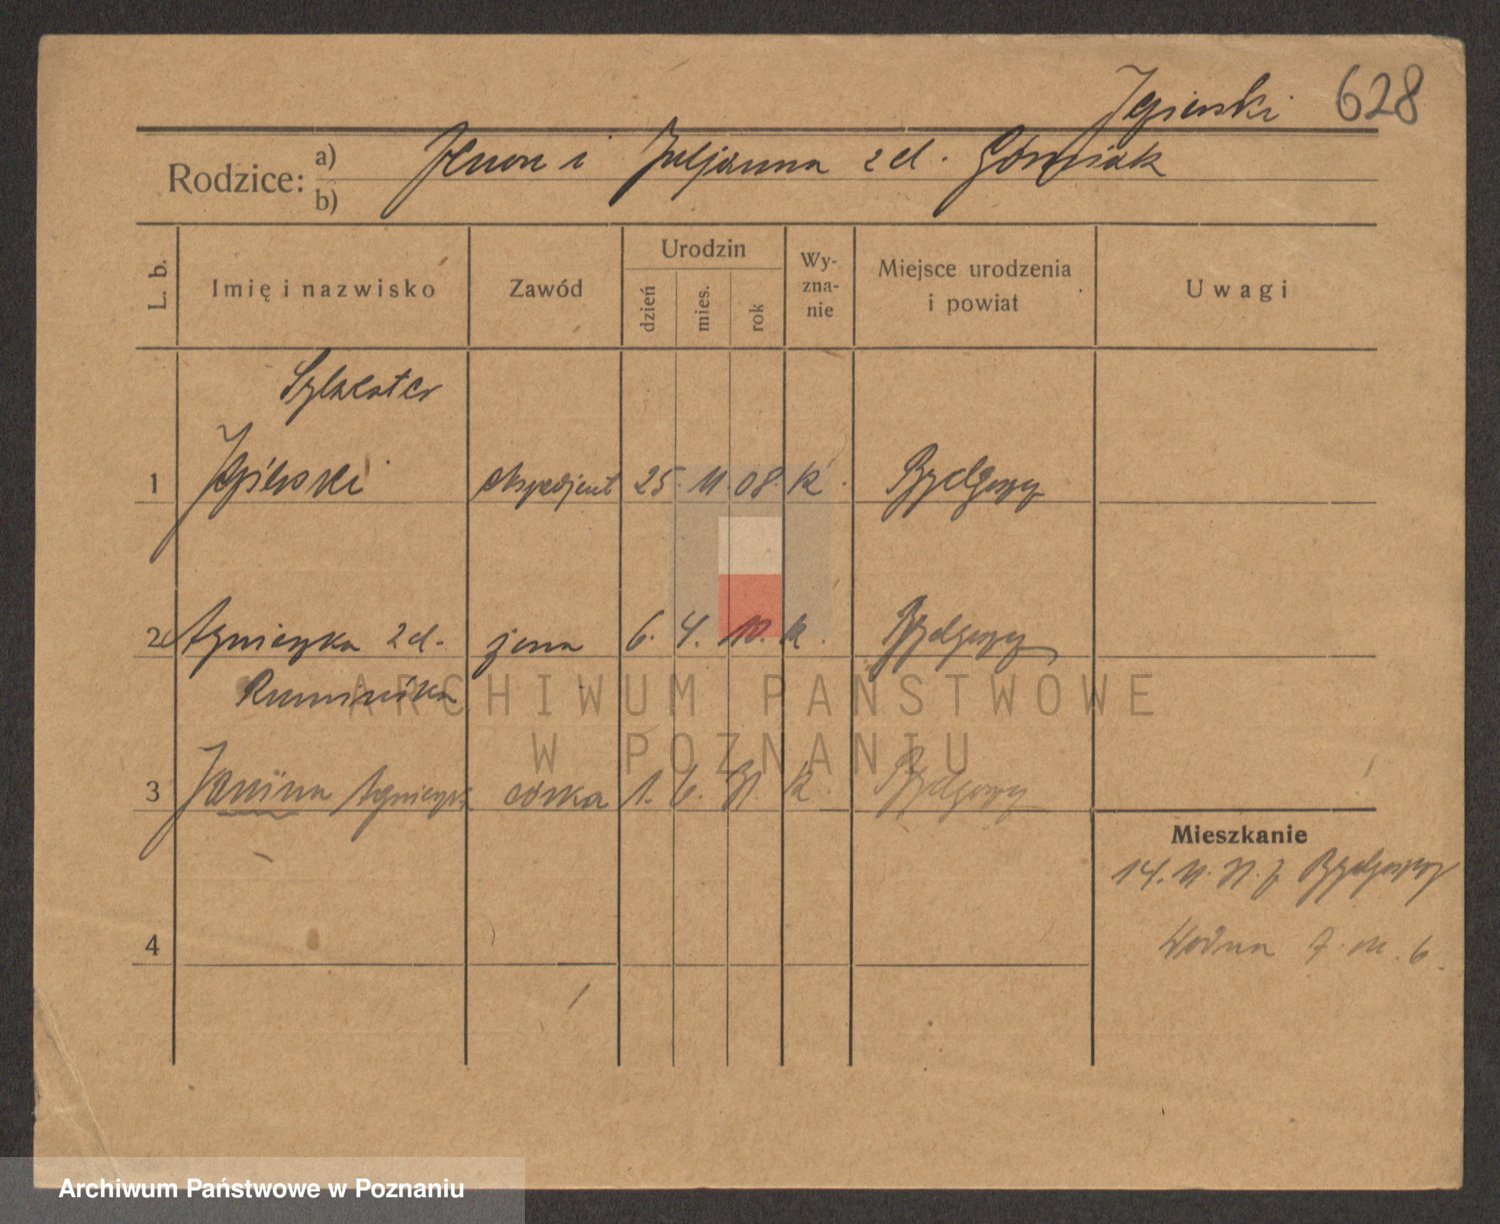 628
Rodzice: a) i Juljanna z d. Górniak
b)
L. b.
Imię i nazwisko
Zawód
Urodzin
dzień
mies.
rok
Wy-
zna-
nie
Miejsce urodzenia
i powiat
Uwagi
Sylwester
1 ekspedjent 25. 11. 08. k. Bydgoszcz
2 Agnieszka z d. żona 6. 4. 10. k. Bydgoszcz
3 Janina Agnieszka córka 1. 6. 31. k. Bydgoszcz
Mieszkanie
14. 11. 31. z Bydgoszczy
4
7. m. 6.
ARCHIWUM PAŃSTWOWE
W POZNANIU
Archiwum Państwowe w Poznaniu